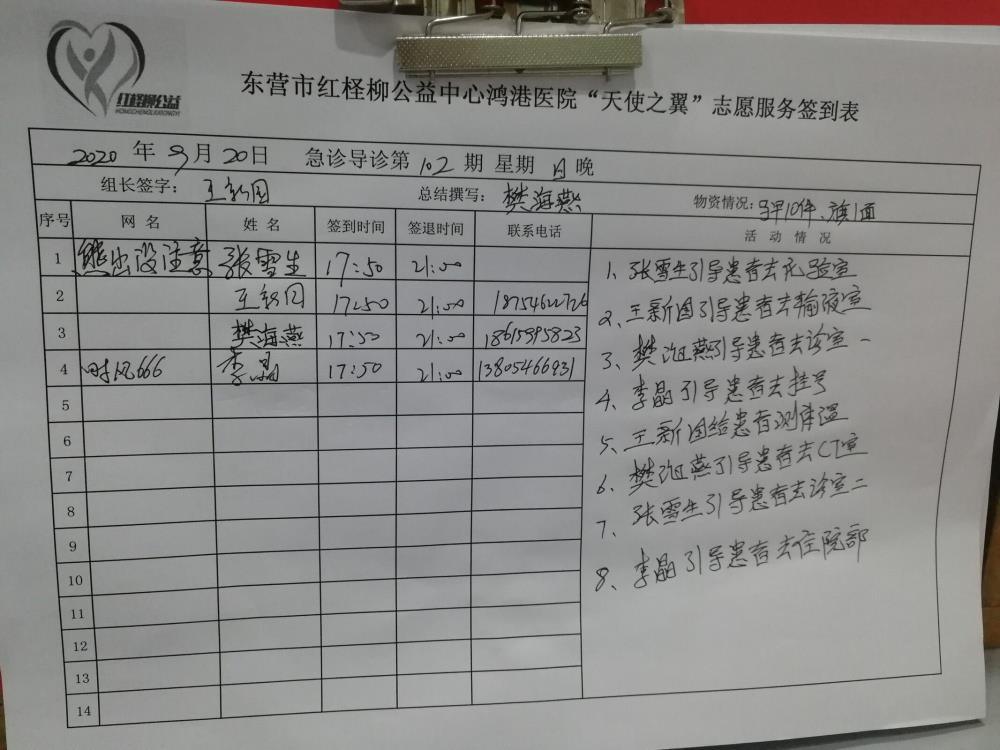 红柽柳公益
HONGCHENGLIUGONGYI
东营市红柽柳公益中心鸿港医院“天使之翼”志愿服务签到表
2020 年 9月 20日 急诊导诊第 102 期 星期 日 晚
组长签字： 王新国 总结撰写： 樊海燕 物资情况： 马甲10件、旗1面
序号 网 名 姓 名 签到时间 签退时间 联系电话 活 动 情 况
1 熊出没注意 张雪生 17:50 21:00
2 王新国 17:50 21:00
3 樊海燕 17:50 21:00 18615995823
4 时风666 李晶 17:50 21:00 13805466931
5
6
7
8
9
10
11
12
13
14
1、张雪生引导患者去化验室
2、王新国引导患者去输液室
3、樊海燕引导患者去诊室一
4、李晶引导患者去挂号
5、王新国给患者测体温
6、樊海燕引导患者去CT室
7、张雪生引导患者去诊室二
8、李晶引导患者去住院部